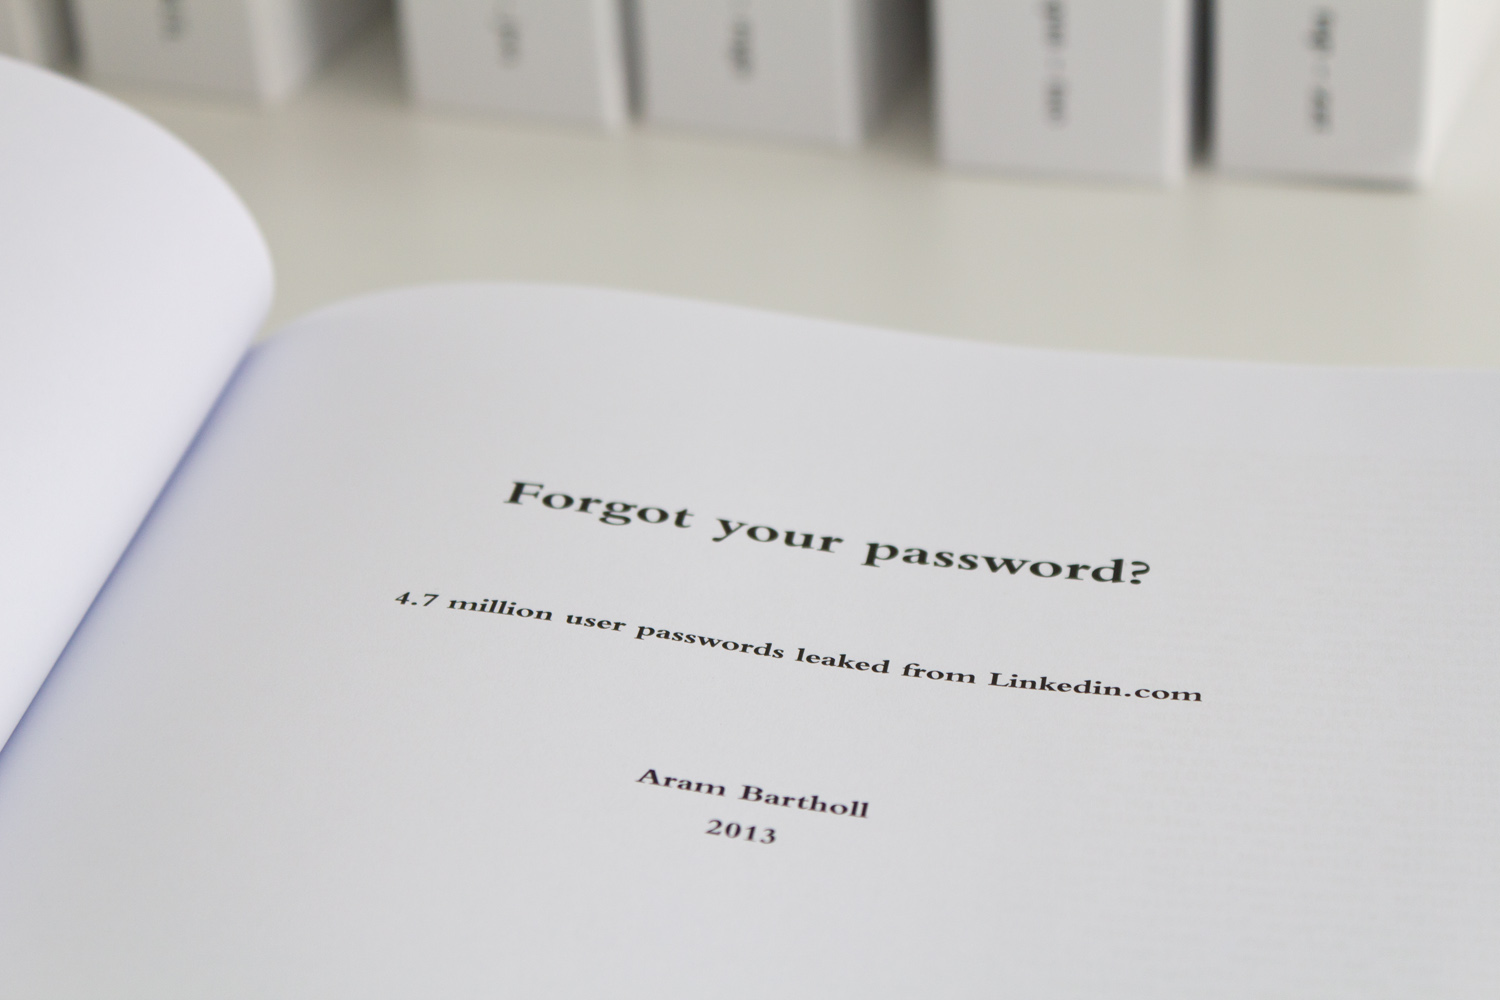 Forgot your password?
4.7 million user passwords leaked from Linkedin.com
Aram Bartholl
2013